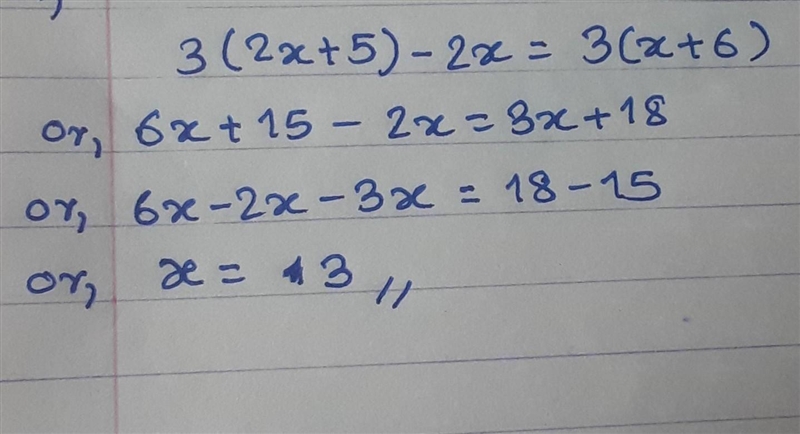 3(2x+5)-2x=3(x+6)
or, 6x+15-2x=3x+18
or, 6x-2x-3x=18-15
or, x=3,,